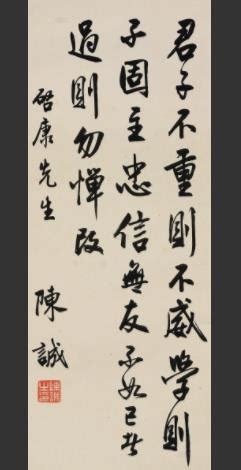 君子不重則不威學則
不固主忠信無友不如己者
過則勿憚改
啓康先生
陳誠